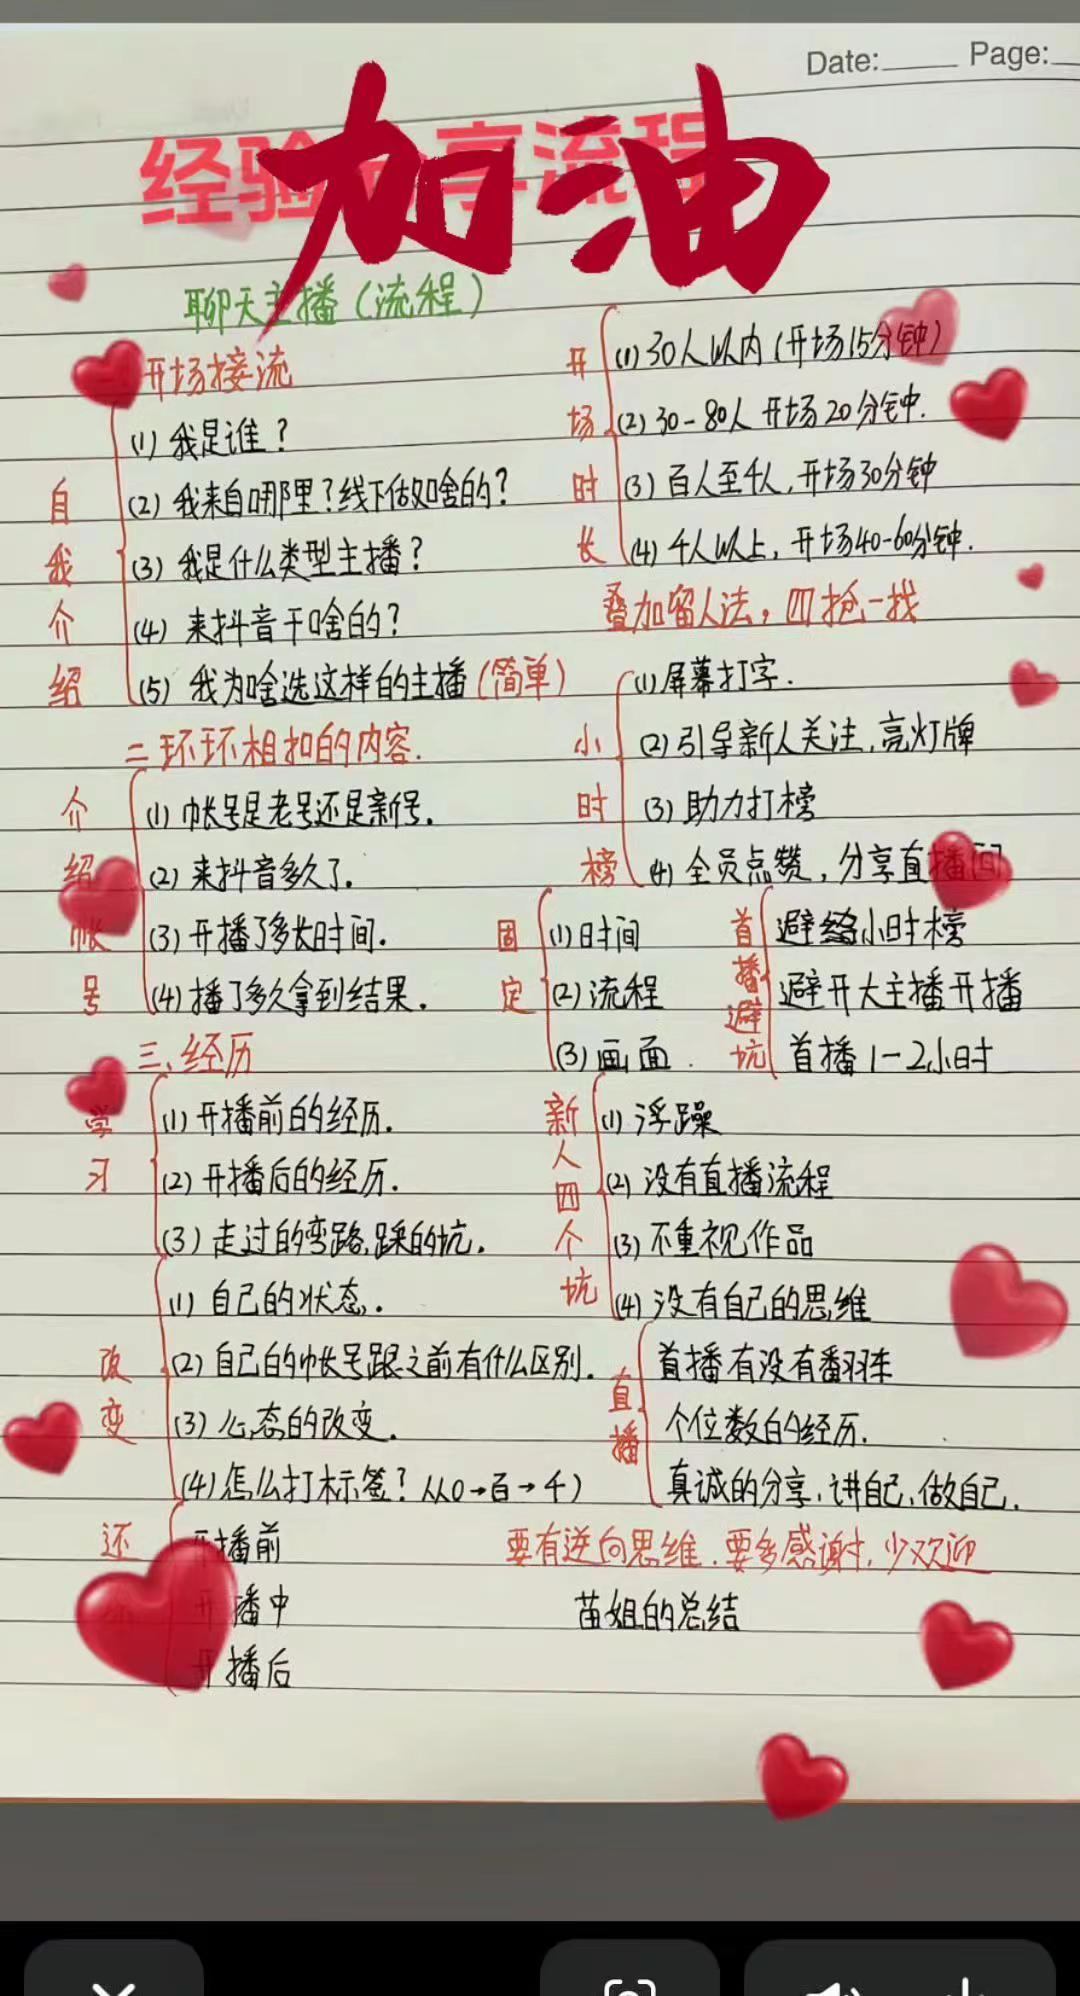 Date: Page:
经验分享流程
加油
聊天主播(流程)
一开场接流
自我介绍
(1) 我是谁?
(2) 我来自哪里?线下做啥的?
(3) 我是什么类型主播?
(4) 来抖音干啥的?
(5) 我为啥选这样的主播(简单)
二环环相扣的内容.
介绍帐号
(1) 帐号是老号还是新号.
(2) 来抖音多久了.
(3) 开播了多长时间.
(4) 播了多久拿到结果.
三、经历
学习
(1) 开播前的经历.
(2) 开播后的经历.
(3) 走过的弯路,踩的坑.
改变
(1) 自己的状态.
(2) 自己的帐号跟之前有什么区别.
(3) 心态的改变.
(4) 怎么打标签?从0→百→千)
还
开播前
开播中
开播后
开场时长
(1) 30人以内(开场15分钟)
(2) 30-80人 开场20分钟.
(3) 百人至千人,开场30分钟
(4) 千人以上,开场40-60分钟.
叠加留人法,四抢一找
小时榜
(1) 屏幕打字.
(2) 引导新人关注,亮灯牌
(3) 助力打榜
(4) 全员点赞,分享直播间
固定
(1) 时间
(2) 流程
(3) 画面.
首播避坑
避小时榜
避开大主播开播
首播1-2小时
新人四个坑
(1) 浮躁
(2) 没有直播流程
(3) 不重视作品
(4) 没有自己的思维
直播
首播有没有翻车
个位数的经历.
真诚的分享,讲自己,做自己.
要有逆向思维.要多感谢,少欢迎
苗姐的总结